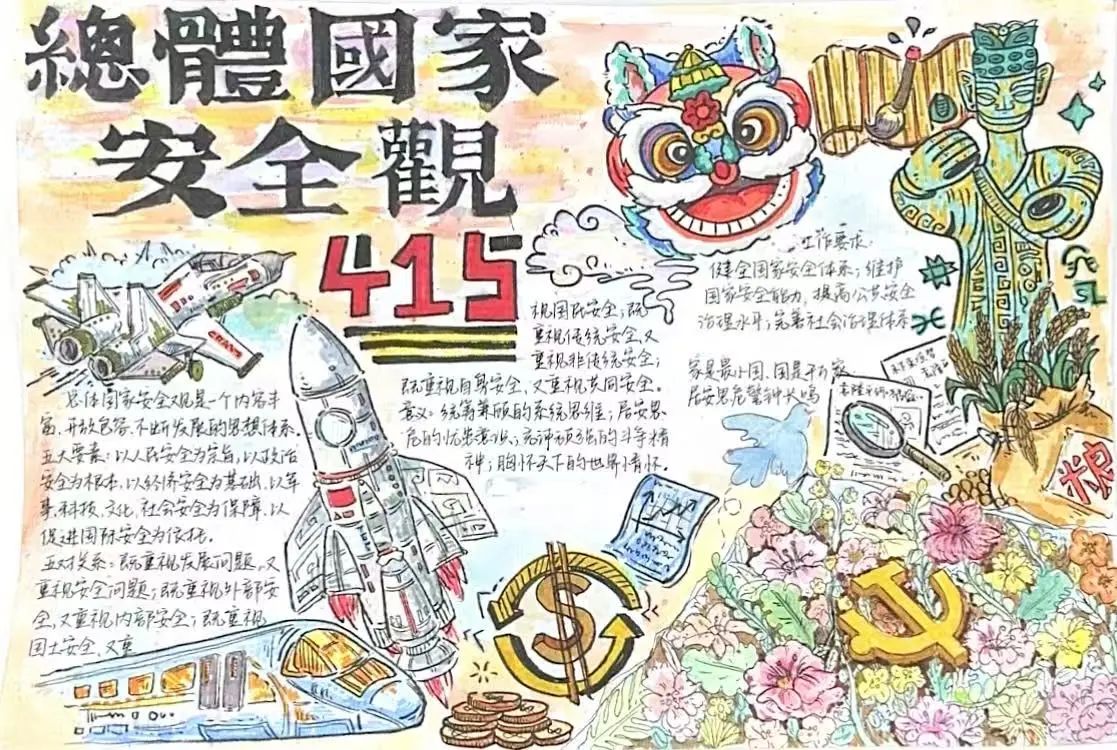 總體國家
安全觀
415
总体国家安全观是一个内容丰
富、开放包容、不断发展的思想体系。
五大要素：以人民安全为宗旨，以政治
安全为根本，以经济安全为基础，以军
事、科技、文化、社会安全为保障，以
促进国际安全为依托。
五对关系：既重视发展问题，又
重视安全问题；既重视外部安
全，又重视内部安全；既重视
国土安全，又重
视国民安全；既
重视传统安全，又
重视非传统安全；
既重视自身安全，又重视共同安全。
意义：统筹兼顾的系统思维；居安思
危的忧患意识；充沛顽强的斗争精
神；胸怀天下的世界情怀。
工作要求：
健全国家安全体系；维护
国家安全能力，提高公共安全
治理水平；完善社会治理体系
家是最小国、国是千万家
居安思危警钟长鸣
粮